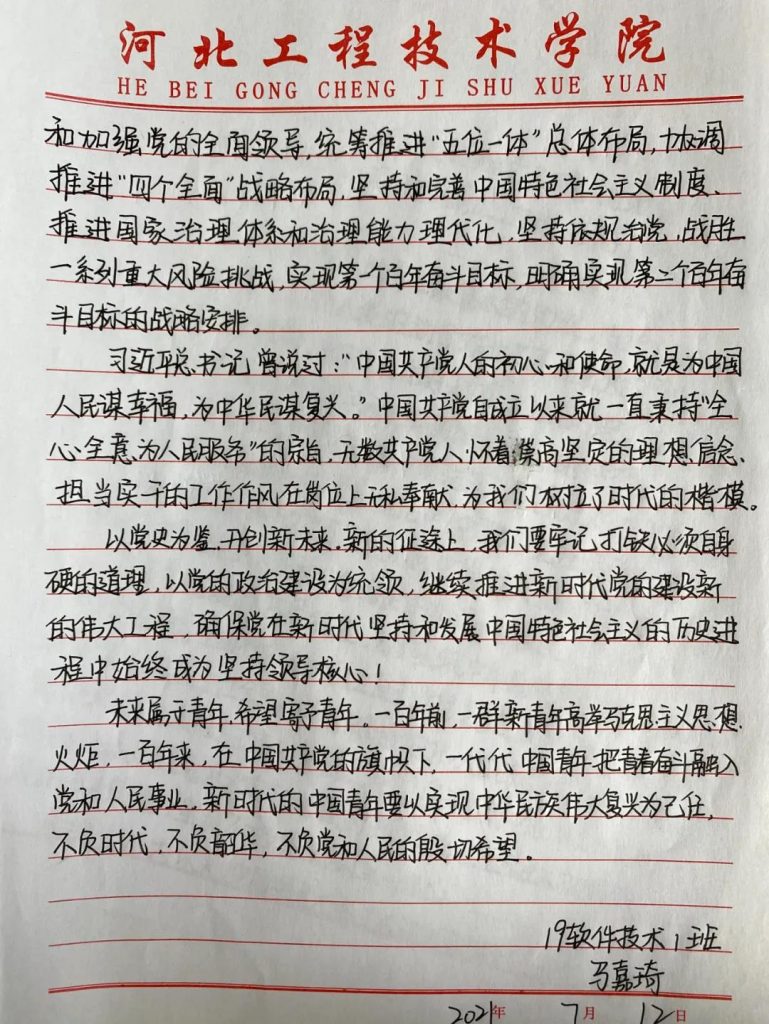 河北工程技术学院
HE BEI GONG CHENG JI SHU XUE YUAN
和加强党的全面领导,统筹推进“五位一体”总体布局,协调
推进“四个全面”战略布局,坚持和完善中国特色社会主义制度、
推进国家治理体系和治理能力理代化,坚持依规治党,战胜
一系列重大风险挑战,实现第一个百年奋斗目标,明确实现第二个百年奋
斗目标的战略安排。
习近平总书记曾说过:“中国共产党人的初心和使命,就是为中国
人民谋幸福,为中华民谋复兴。”中国共产党自成立以来就一直秉持“全
心全意为人民服务”的宗旨,无数共产党人怀着崇高坚定的理想信念、
担当实干的工作作风在岗位上无私奉献,为我们树立了时代的楷模。
以党史为鉴,开创新未来。新的征途上,我们要牢记打铁必须自身
硬的道理,以党的政治建设为统领,继续推进新时代党的建设新
的伟大工程,确保党在新时代坚持和发展中国特色社会主义的历史进
程中始终成为坚持领导核心!
未来属于青年,希望寄予青年。一百年前,一群新青年高举马克思主义思想
火炬,一百年来,在中国共产党的旗帜下,一代代中国青年把青春奋斗融入
党和人民事业,新时代的中国青年要以实现中华民族伟大复兴为己任,
不负时代,不负韶华,不负党和人民的殷切希望。
19软件技术1班
马嘉琦
2021年7月12日